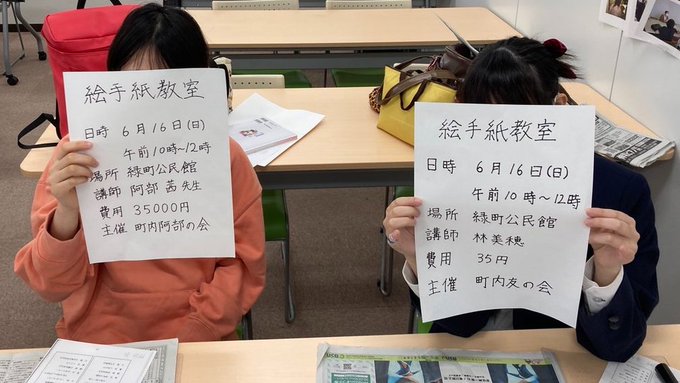 絵手紙教室
日時 6月16日(日)
午前10時〜12時
場所 緑町公民館
講師 阿部 茜先生
費用 35000円
主催 町内阿部の会
絵手紙教室
日時 6月16日(日)
午前10時〜12時
場所 緑町公民館
講師 林美穂
費用 35円
主催 町内友の会